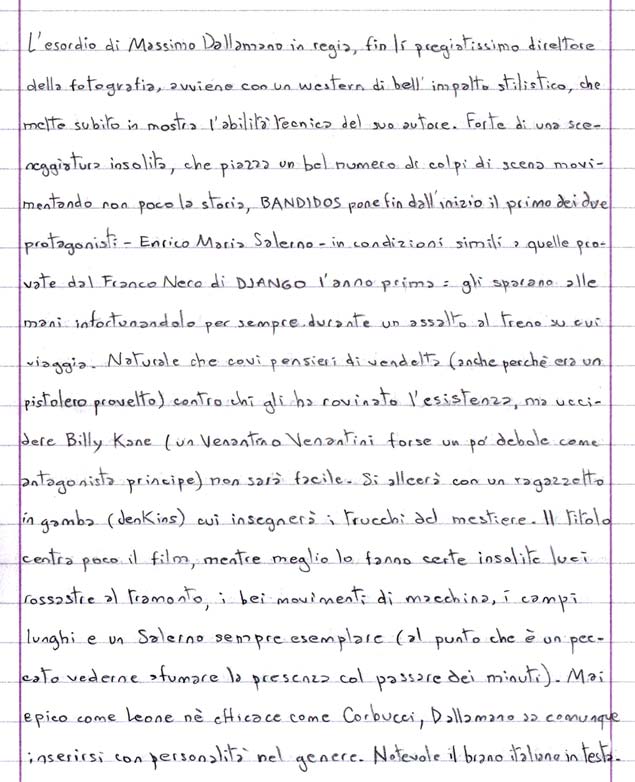 L'esordio di Massimo Dallamano in regia, fin lì pregiatissimo direttore
della fotografia, avviene con un western di bell'impatto stilistico, che
mette subito in mostra l'abilità tecnica del suo autore. Forte di una sce-
neggiatura insolita, che piazza un bel numero di colpi di scena movi-
mentando non poco la storia, BANDIDOS pone fin dall'inizio il primo dei due
protagonisti - Enrico Maria Salerno - in condizioni simili a quelle pro-
vate dal Franco Nero di DJANGO l'anno prima: gli sparano alle
mani infortunandolo per sempre durante un assalto al treno su cui
viaggia. Naturale che covi pensieri di vendetta (anche perchè era un
pistolero provetto) contro chi gli ha rovinato l'esistenza, ma ucci-
dere Billy Kane (un Venantino Venantini forse un po' debole come
antagonista principe) non sarà facile. Si alleerà con un ragazzetto
in gamba (Jenkins) cui insegnerà i trucchi del mestiere. Il titolo
centra poco il film, mentre meglio lo fanno certe insolite luci
rossastre al tramonto, i bei movimenti di macchina, i campi
lunghi e un Salerno sempre esemplare (al punto che è un pec-
cato vederne sfumare la presenza col passare dei minuti). Mai
epico come Leone nè efficace come Corbucci, Dallamano sa comunque
inserirsi con personalità nel genere. Notevole il brano italiano in testa.